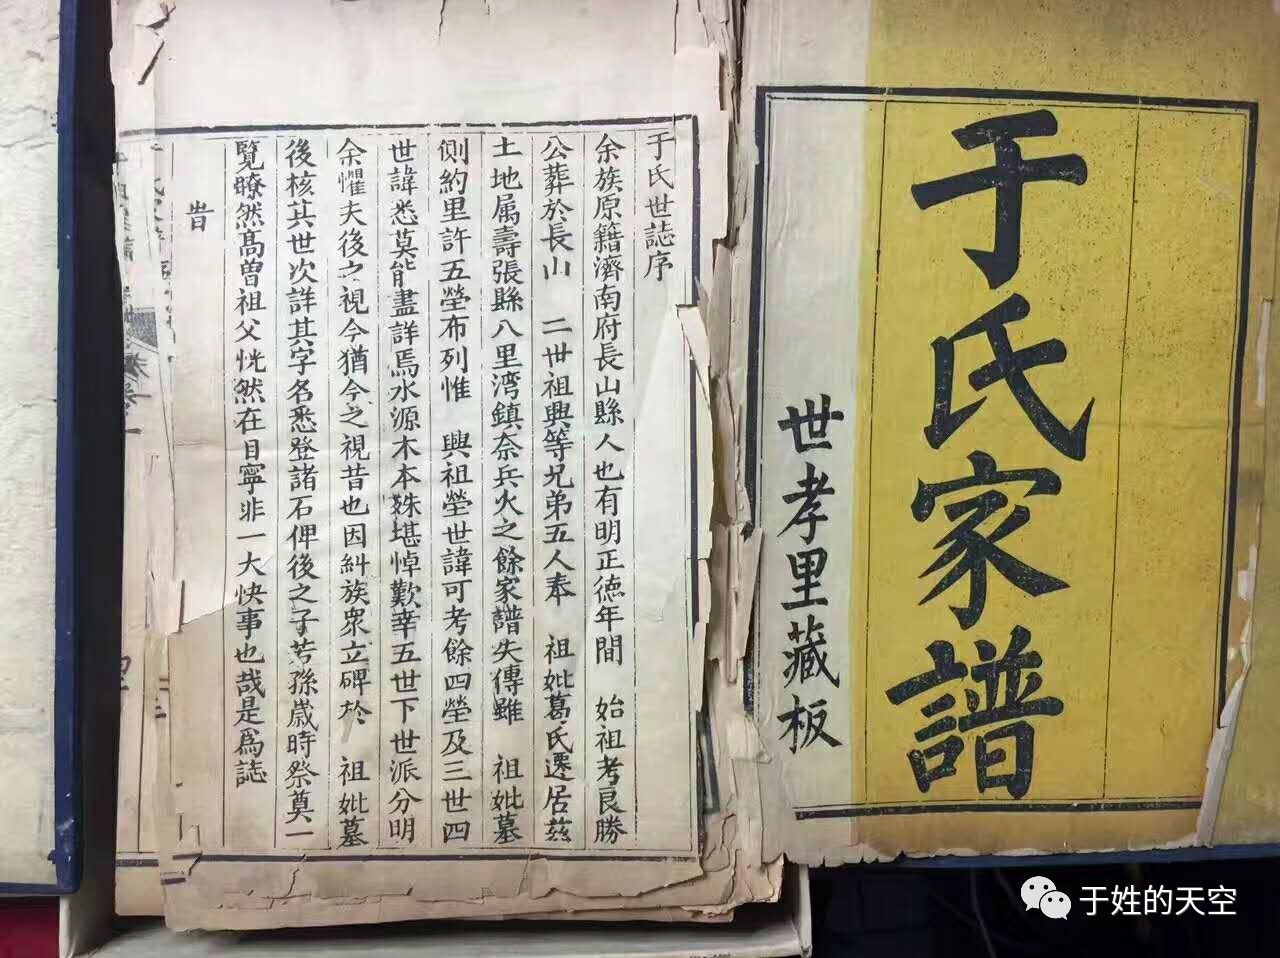 于氏家譜
世孝里藏板
于氏世誌序
余族原籍濟南府長山縣人也有明正德年間 始祖考良勝
公葬於長山 二世祖興等兄弟五人奉 祖妣葛氏遷居茲
土地属壽張縣八里湾鎮奈兵火之餘家譜失傳雖 祖妣墓
側約里許五塋布列惟 興祖塋世諱可考餘四塋及三世四
世諱悉莫能盡詳焉水源木本殊堪悼歎幸五世下世派分明
余懼夫後之視今猶今之視昔也因糾族衆立碑於 祖妣墓
後核其世次詳其字名悉登諸石俾後之子若孫歲時祭奠一
覽瞭然髙曽祖父恍然在目寧非一大快事也哉是為誌
旹
于姓的天空